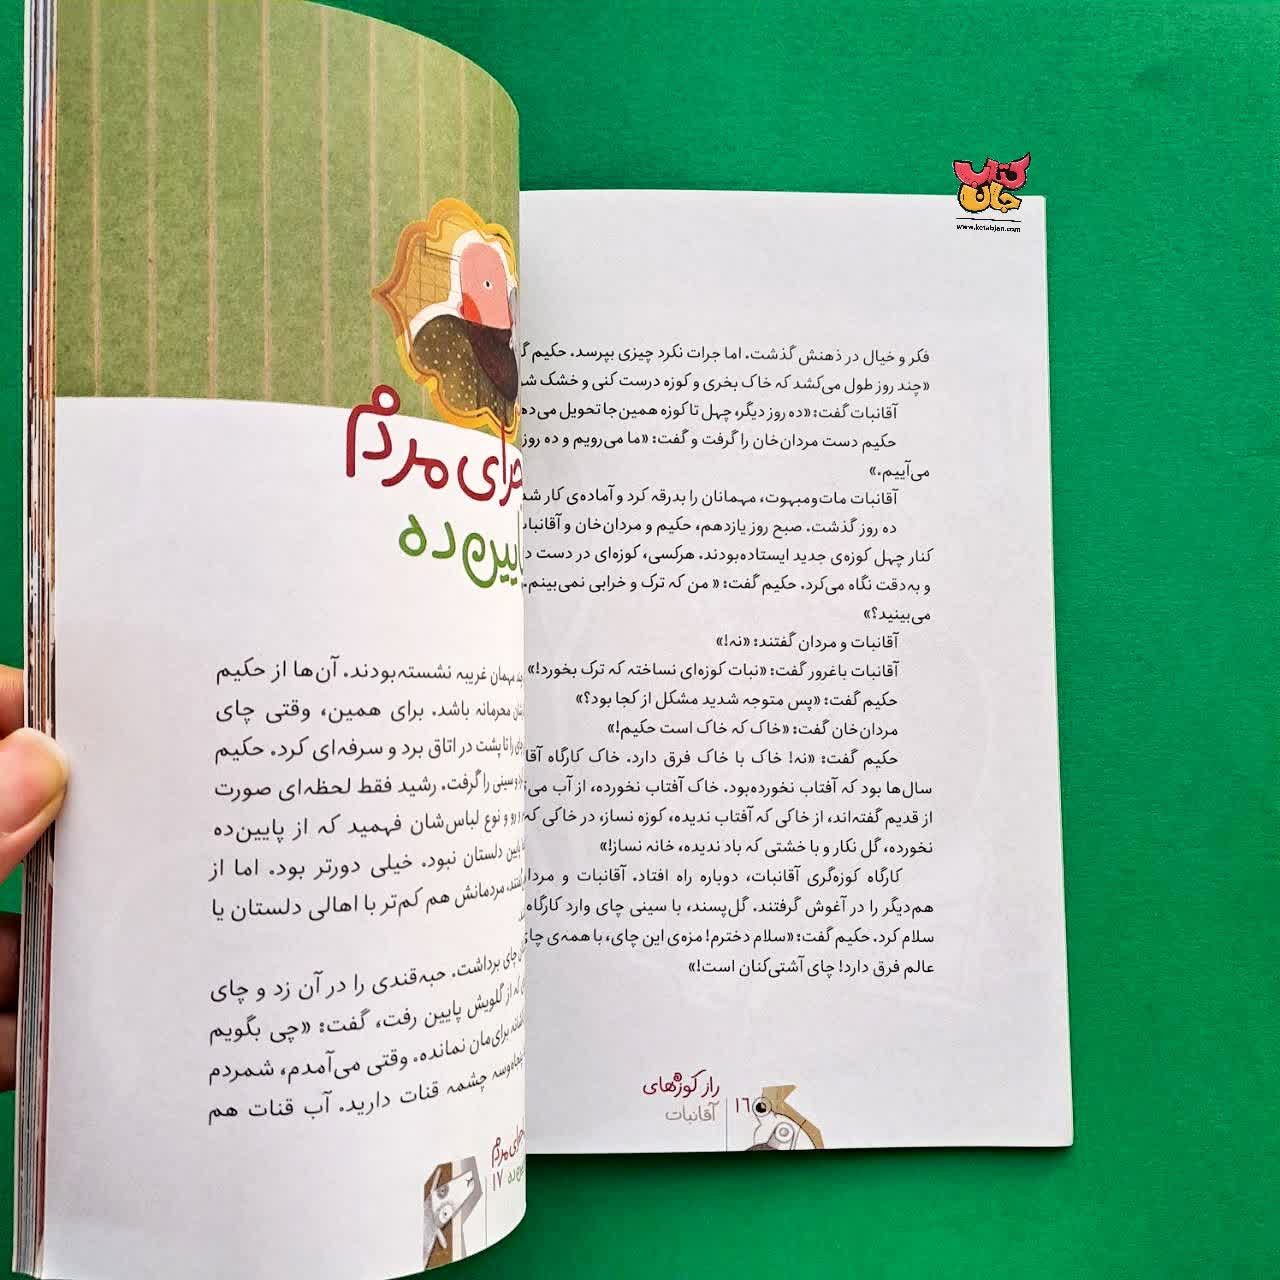 کتاب
جان
www.ketabjan.com
فکر و خیال در ذهنش گذشت. اما جرات نکرد چیزی بپرسد. حکیم
«چند روز طول می‌کشد که خاک بخری و کوزه درست کنی و خشک
آقانبات گفت: «ده روز دیگر، چهل تا کوزه همین‌جا تحویل
حکیم دست مردان‌خان را گرفت و گفت: «ما می‌رویم و ده روز
می‌آییم.»
آقانبات مات‌ومبهوت، مهمانان را بدرقه کرد و آماده‌ی کار
ده روز گذشت. صبح روز یازدهم، حکیم و مردان‌خان و
کنار چهل کوزه‌ی جدید ایستاده‌بودند. هرکسی، کوزه‌ای در دست
و به‌دقت نگاه می‌کرد. حکیم گفت: « من که ترک و خرابی نمی‌بینم.
می‌بینید؟»
آقانبات و مردان گفتند: «نه!»
آقانبات باغرور گفت: «نبات کوزه‌ای نساخته که ترک بخورد!»
حکیم گفت: «پس متوجه شدید مشکل از کجا بود؟»
مردان‌خان گفت: «خاک که خاک است حکیم!»
حکیم گفت: «نه! خاک با خاک فرق دارد. خاک کارگاه
سال‌ها بود که آفتاب نخورده‌بود. خاک آفتاب نخورده، از آب
از قدیم گفته‌اند، از خاکی که آفتاب ندیده، کوزه نساز، در خاکی
نخورده، گل نکار و با خشتی که باد ندیده، خانه نساز!»
کارگاه کوزه‌گری آقانبات، دوباره راه افتاد. آقانبات و
هم‌دیگر را در آغوش گرفتند. گل‌پسند، با سینی چای وارد کارگاه
سلام کرد. حکیم گفت: «سلام دخترم! مزه‌ی این چای، با همه‌ی
عالم فرق دارد! چای آشتی‌کنان است!»
راز کوزه‌های
آقانبات
۱۶
مردم
ده
مهمان غریبه نشسته‌بودند. آن‌ها از حکیم
محرمانه باشد. برای همین، وقتی چای
را تا پشت در اتاق برد و سرفه‌ای کرد. حکیم
و سینی را گرفت. رشید فقط لحظه‌ای صورت
و نوع لباس‌شان فهمید که از پایین‌ده
پایین دلستان نبود. خیلی دورتر بود. اما از
مردمانش هم کم‌تر با اهالی دلستان یا
چای برداشت. حبه‌قندی را در آن زد و چای
که از گلویش پایین رفت، گفت: «چی بگویم
برای‌مان نمانده. وقتی می‌آمدم، شمردم
چشمه قنات دارید. آب قنات هم
مردم
ده
۱۷